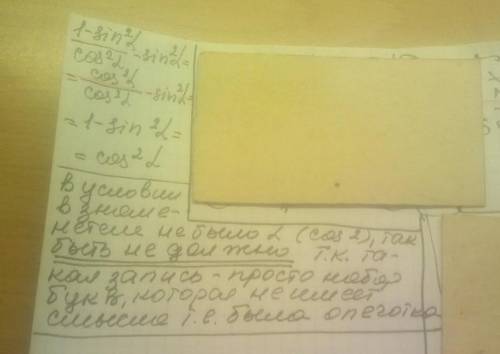 1-sin²α/cos²α - sin²α =
= cos²α/cos²α - sin²α =
= 1-sin²α =
= cos²α
В условии
в знаме-
нателе не было α (cos²), так
быть не должно т.к. та-
кая запись - просто набор
букв, которая не имеет
смысла т.е. была опечатка